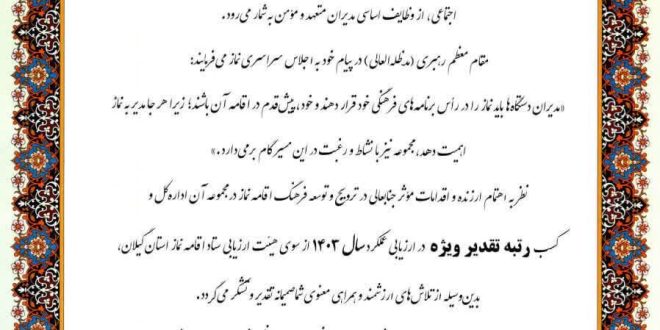 اجتماعی، از وظایف اساسی مدیران متعهد و مؤمن به شمار می‌رود.
مقام معظم رهبری (مدظله‌العالی) در پیام خود به اجلاس سراسری نماز می‌فرمایند:
«مدیران دستگاه‌ها باید نماز را در رأس برنامه‌های فرهنگی خود قرار دهند و خود، پیش‌قدم در اقامه آن باشند؛ زیرا هر جا مدیر به نماز
اهمیت دهد، مجموعه نیز با نشاط و رغبت در این مسیر گام برمی‌دارد.»
نظر به اهتمام ارزنده و اقدامات مؤثر جنابعالی در ترویج و توسعه فرهنگ اقامه نماز در مجموعه آن اداره کل و
کسب رتبه تقدیر ویژه در ارزیابی عملکرد سال ۱۴۰۳ از سوی هیئت ارزیابی ستاد اقامه نماز استان گیلان،
بدین‌وسیله از تلاش‌های ارزشمند و همراهی معنوی شما صمیمانه تقدیر و تشکر می‌گردد.